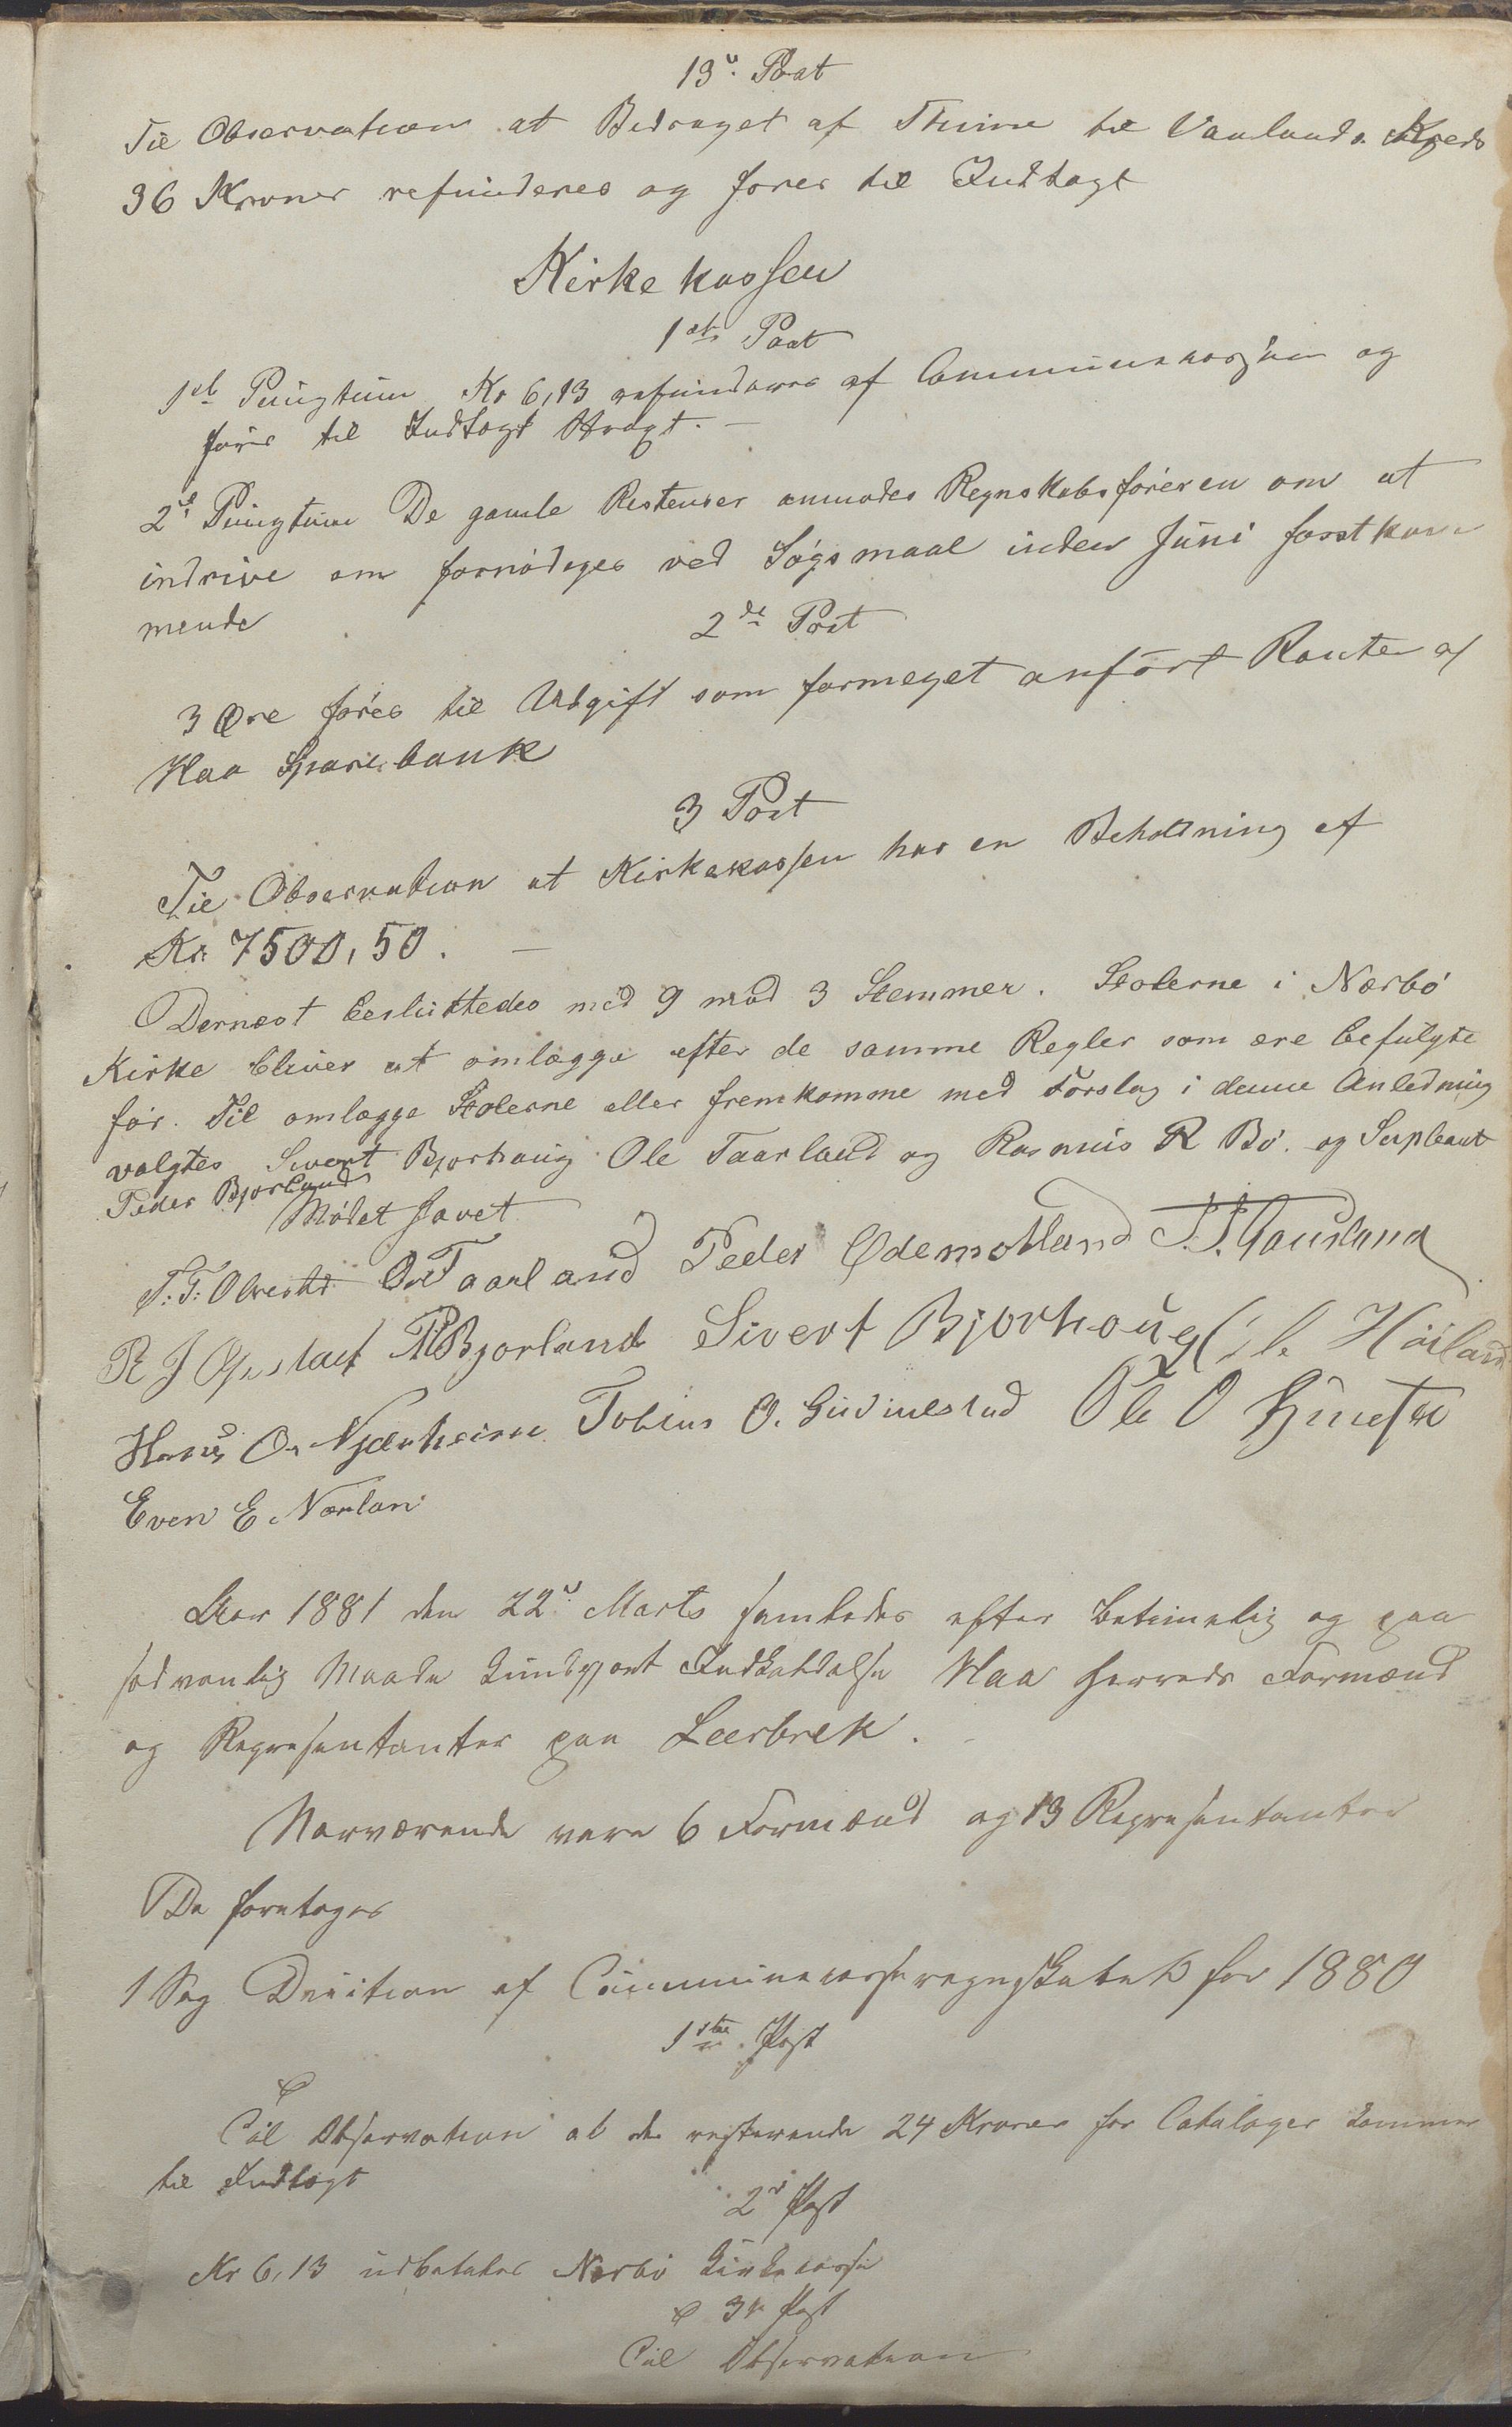 13de Post
Til Observation at Bidraget af Thime til Vaulands Kreds
36 Kroner refunderes og føres til Indtægt
Kirkekassen
1ste Post
1st Pungtum Kr 6,13 refunderes af Communekassen og
føres til Indtægt
2det Pungtum De gamle Restenser anmodes Regnskabsføreren om at
indrive om fornødiges ved Søgsmaal inden Juni førstkom
mende
2de Post
3 Øre føres til Udgift som formeget anført Renter af
Haa Sparebank
3 Post
Til Observation at Kirkekassen har en Beholdning af
Kr. 7500,50.
Dernæst besluttedes med 9 mod 3 Stemmer. Stolerne i Nærbø
Kirke bliver at omlægge efter de samme Regler som ere befulgte
før. Til omlægge Stolerne eller fremkomme med Forslag i denne Anledning
valgtes Sivert Bjorhaug Ole Taarland og Rasmus R Bø. og Supleant
Peder Bjorland
Mødet hævet
T. T. Obrestd O Taarland Peder Ødemotland T. T. Gausland
R J Opstad P Bjorland Sivert Bjorhoug Ole Høiland
Hans O. Njærheim Tobias O. Gudmestad Ole O
Even E. Nærlan
Aar 1881 den 22de Marts samledes efter betimelig og paa
sædvanlig Maade kundgjort Indkaldelse Haa Herreds Formænd
og Repræsentanter paa Leerbrek.
Nærværende vare 6 Formænd og 13 Repræsentanter
Da foretoges
1 Sag Decition af Communecasseregnskabet for 1880
1ste Post
Til Observation at de resterende 24 Kroner for Cataloger kommer
til Indtægt
2de Post
Kr 6,13 udbetales Nærbø Kirkecasse
3de Post
Til Observation